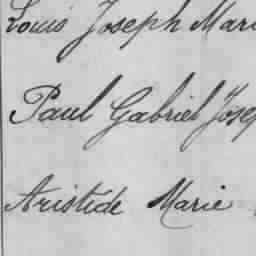 Louis Joseph Mari
Paul Gabriel Jose
Aristide Marie